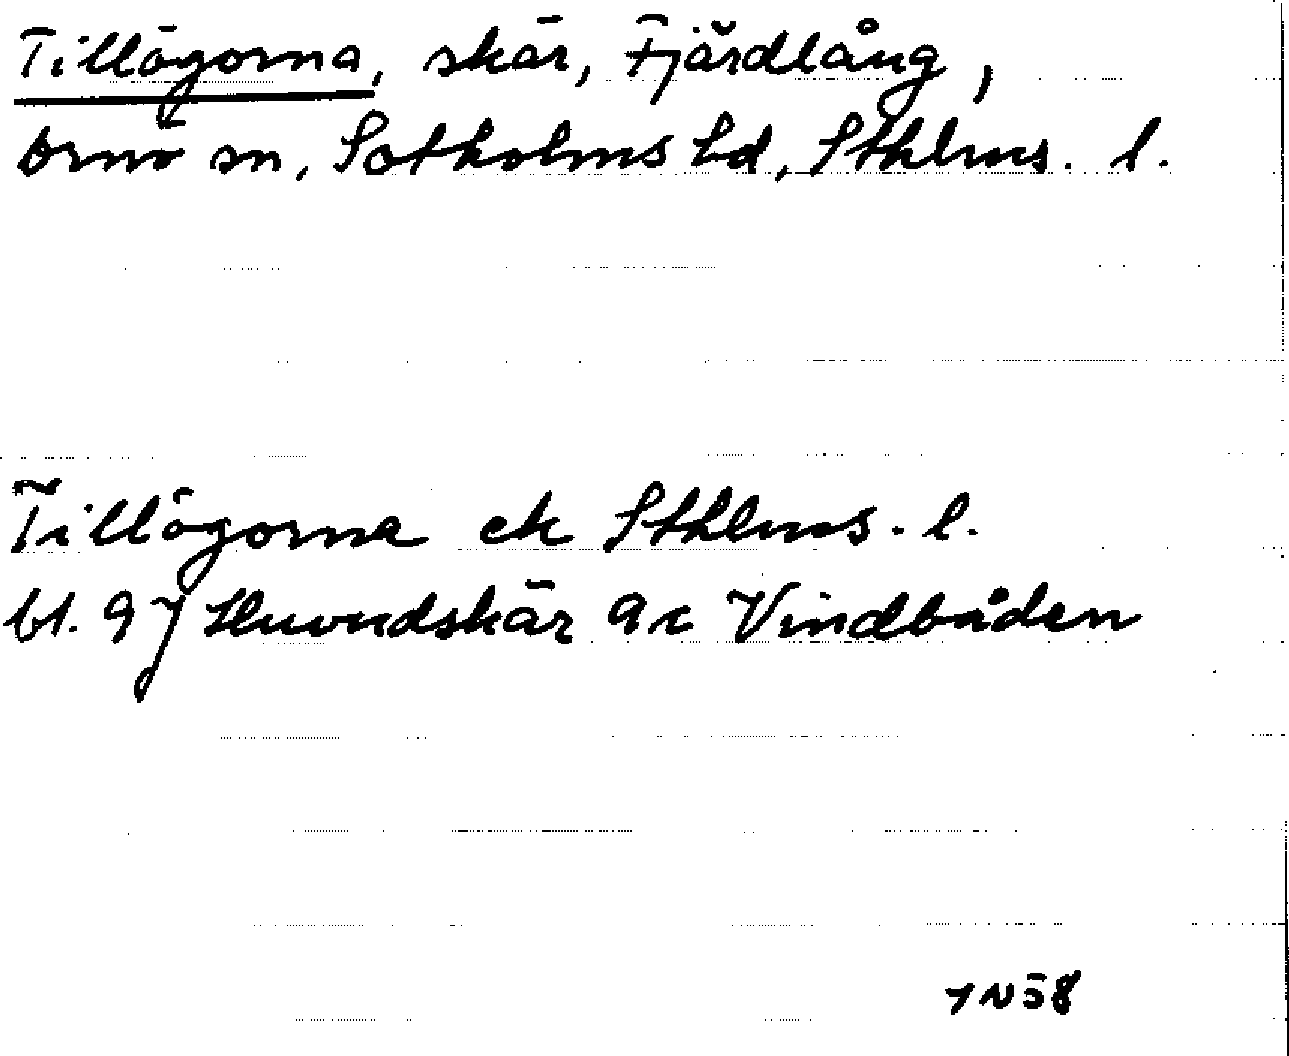 Tillögorna, skär, Fjärdlång,
Ornö sn, Sotholms hd, Sthlms. l.
Tillögorna ek Sthlms. l.
bl. 97 Huvudskär 9c Vindbåden